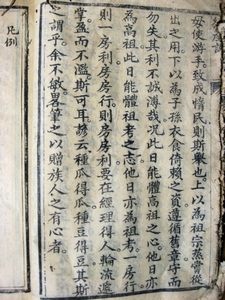 毋使游手致成惰民則斯舉也上以為祖宗蒸嘗從
出之用下以為子孫衣食倚賴之資遵循舊章守而
勿失其利不誠溥哉况此日能體高祖之心他日亦
為高祖此日能體祖考之志他日亦為祖考一房行
則一房利房房行則房房利要在經理得人輪流遞
掌盈而不濫斯可耳諺云種瓜得瓜種豆得豆其斯
之謂乎余不敏畧筆之以贈族人之有心者
凡例